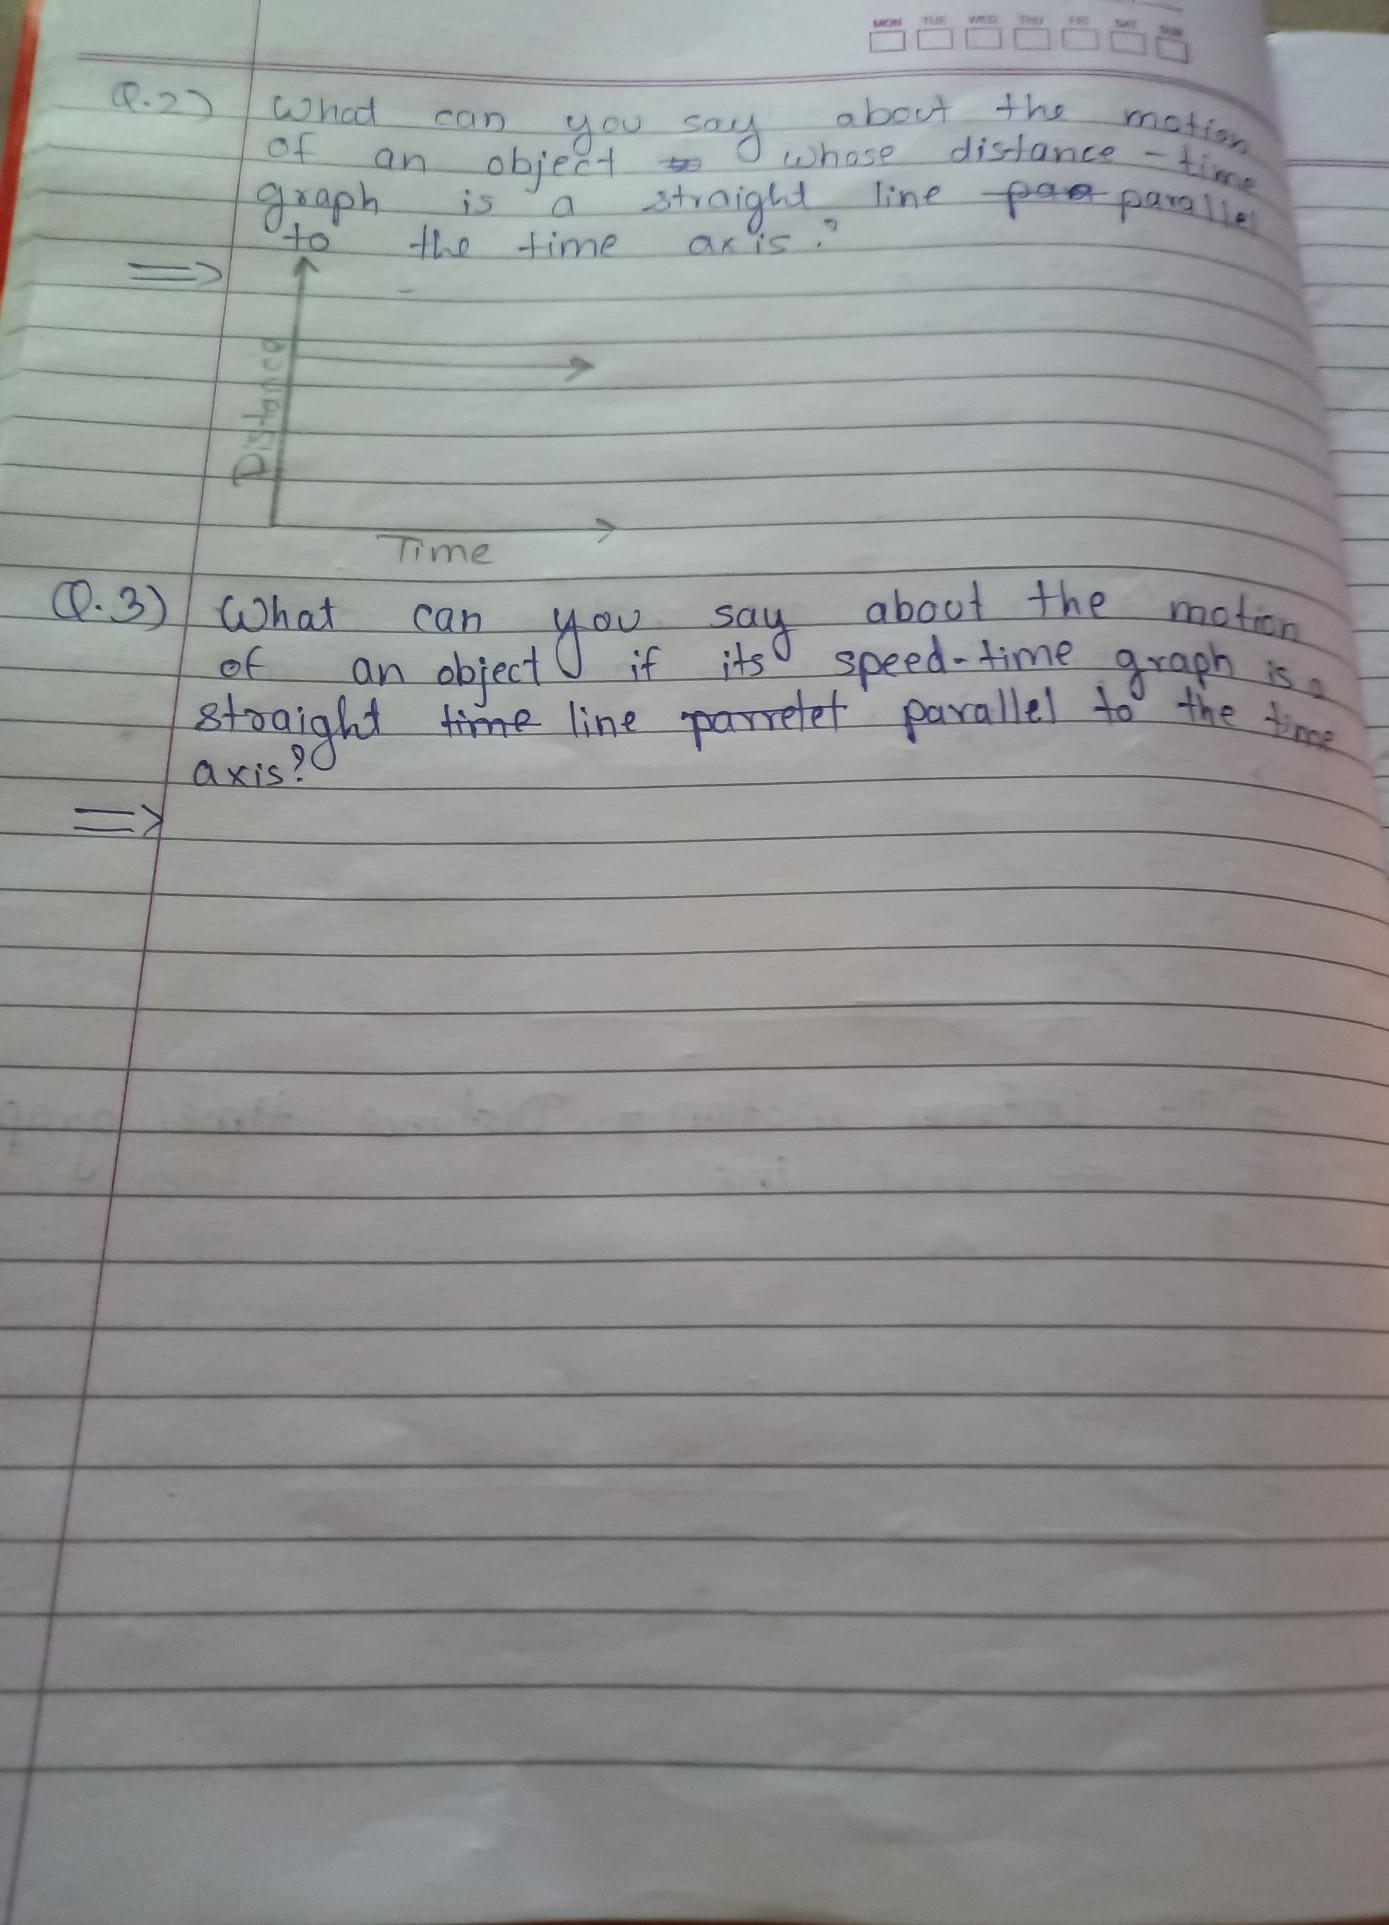 MON TUE WED THU FRI SAT SUN
Q.2) What can you say about the motion
of an object whose distance-time
graph is a straight line par parallel
to the time axis?
=>
Distance
Time
Q.3) What can you say about the motion
of an object if its speed-time graph is a
straight time line parrelet parallel to the time
axis?
=>